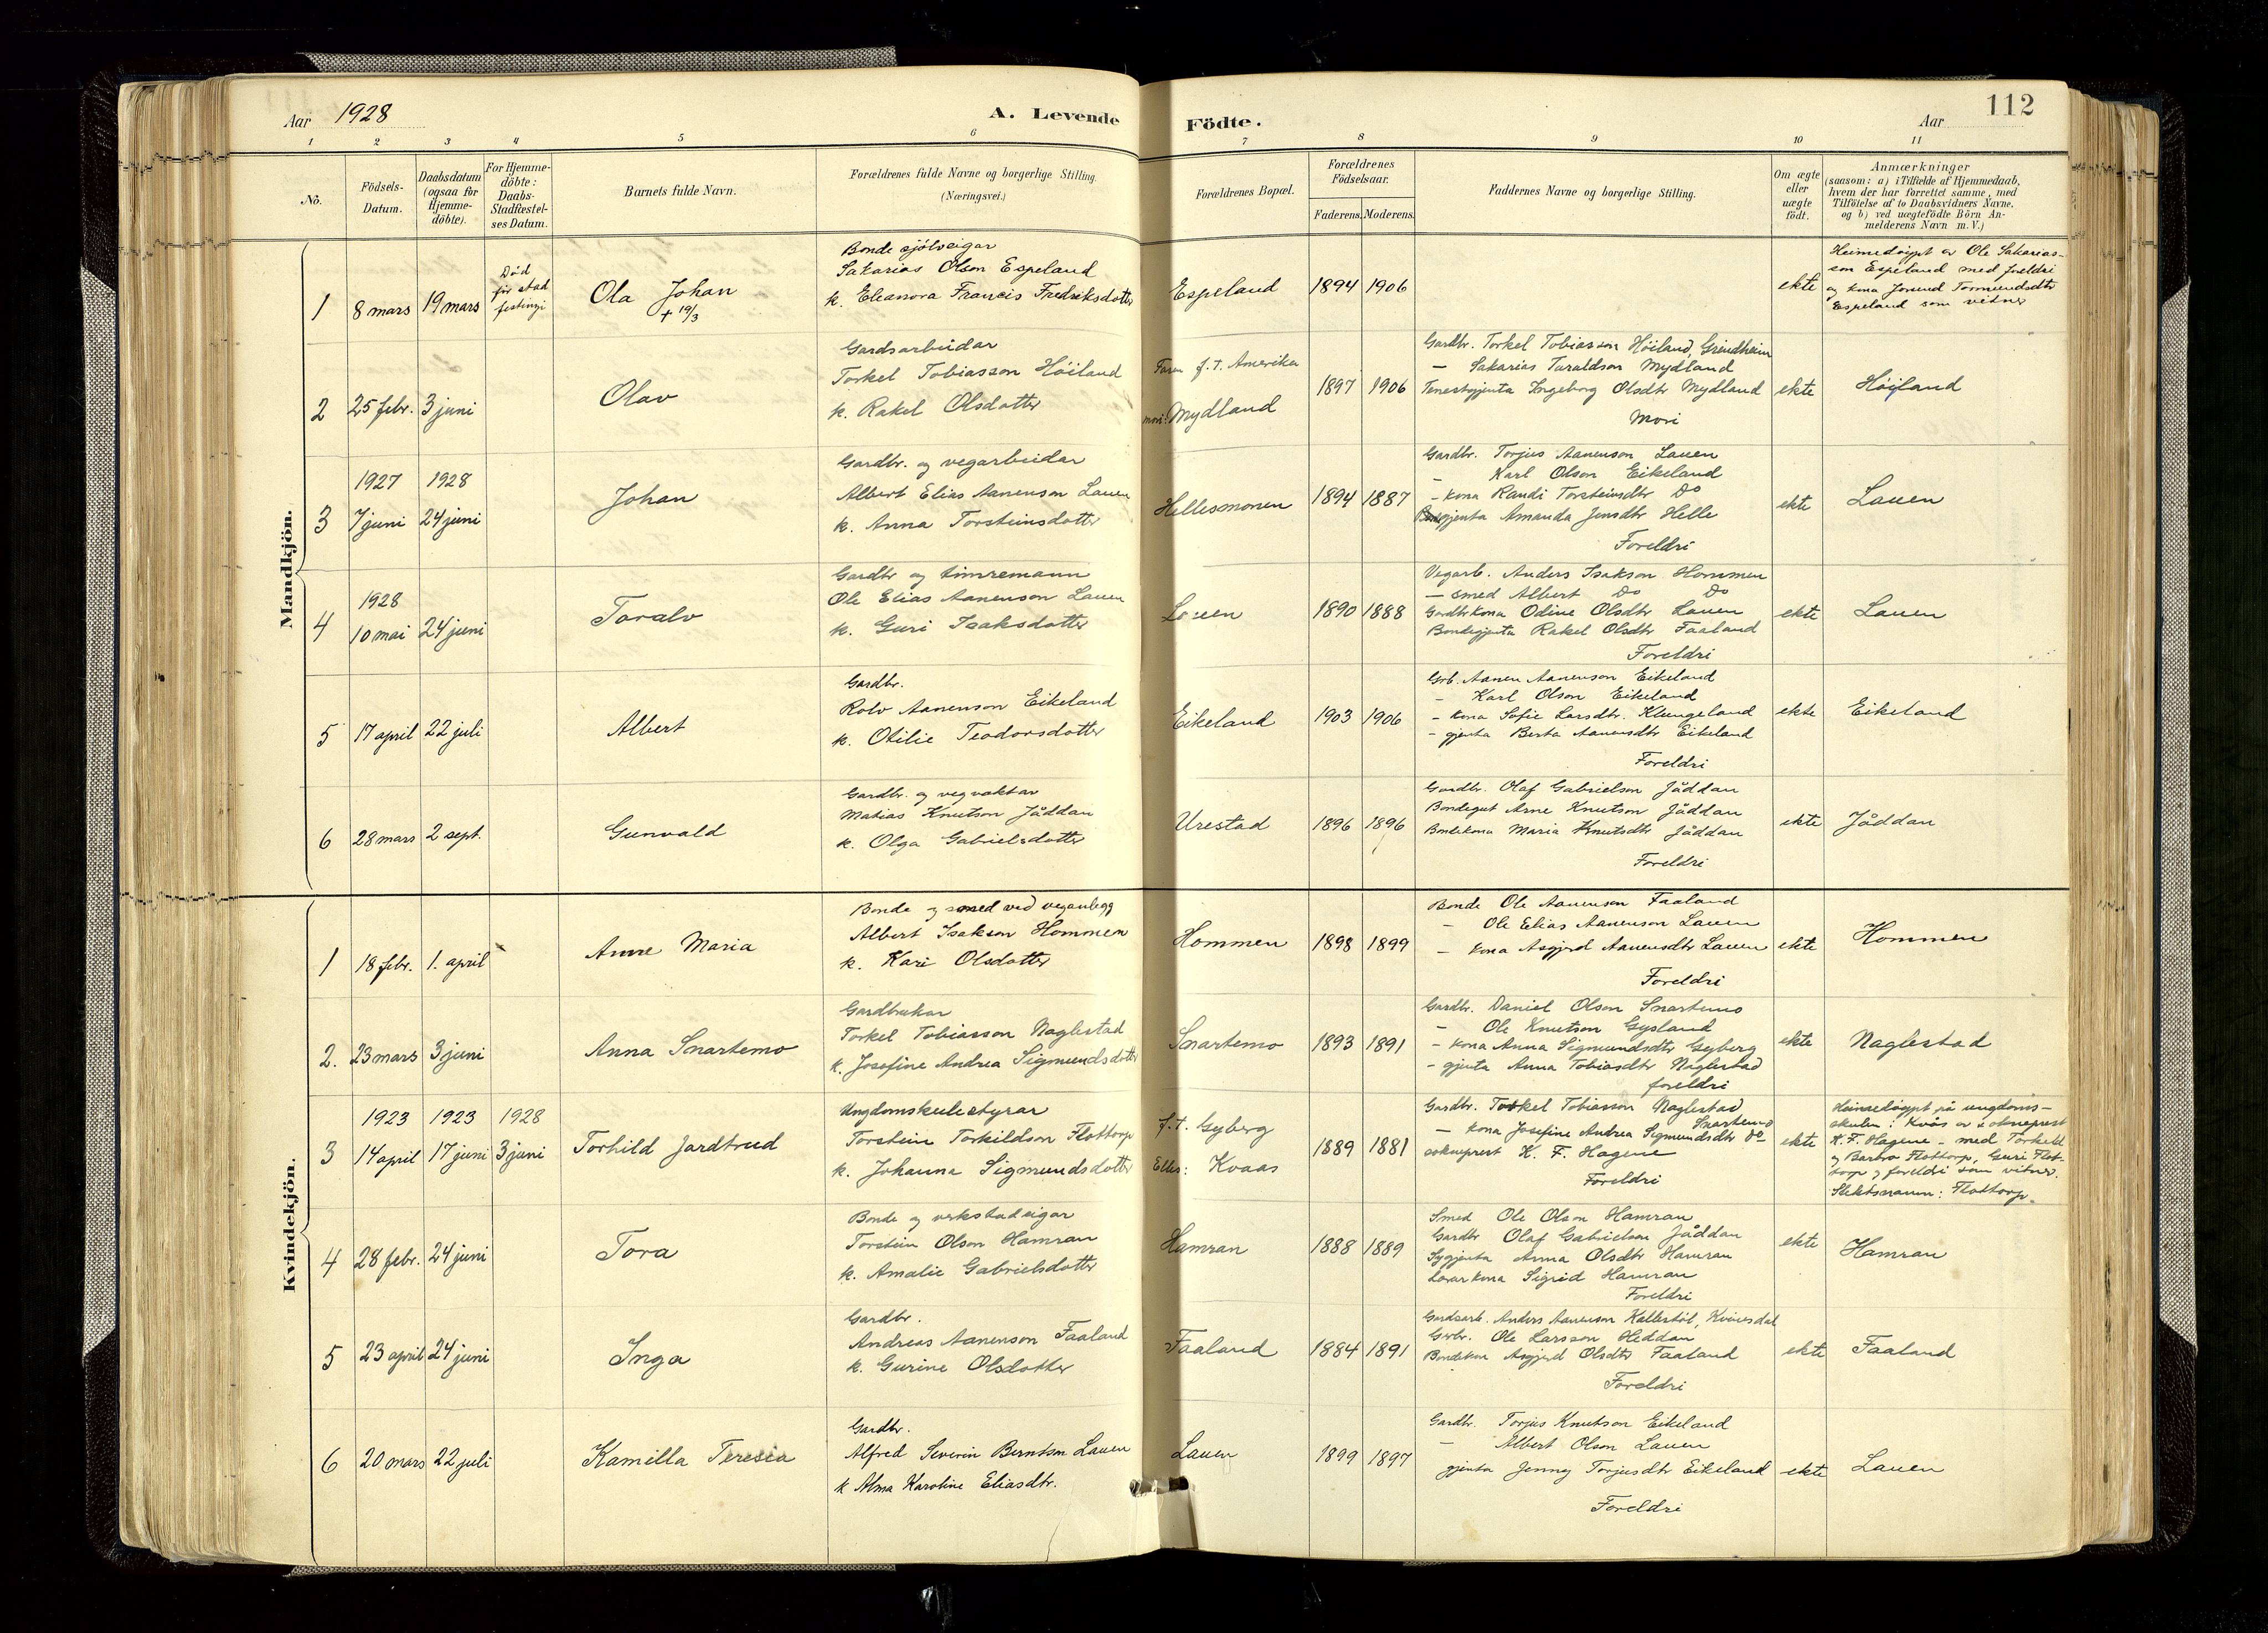 Aar 1928
A. Levende
Födte.
Aar
112
1 2 3 4 5 6 7 8 9 10 11
No.
Födsels-Datum.
Daabsdatum (ogsaa for Hjemme-döbte).
For Hjemme-döbte: Daabs-Stadfæstel-ses Datum.
Barnets fulde Navn.
Forældrenes fulde Navne og borgerlige Stilling. (Næringsvei.)
Forældrenes Bopæl.
Forældrenes Födselsaar.
Faderens. Moderens.
Faddernes Navne og borgerlige Stilling.
Om ægte eller uægte födt.
Anmærkninger
(saasom: a) i Tilfælde af Hjemmedaab,
hvem der har forrettet samme, med
Tilföielse af to Daabsvidners Navne,
og b) ved uægtefödte Börn An-
melderens Navn m. V.)
Mandkjön.
1 8 mars 19 mars
Död
för stad
festingi
Ola Johan
+ 19/3
Bonde sjölveigar
Sakarias Olson Espeland
k. Eleanora Francis Fredriksdotter
Espeland 1894 1906
ekte
Heimedöypt av Ole Sakarias-
son Espeland med foreldri
og kona Jorund Tormundsdtr
Espeland som vitner
2 25 febr. 3 juni
Olav
Gardsarbeidar
Torkel Tobiasson Höiland
k. Rakel Olsdotter
Faren f.t. Amerika
mori: Mydland
1897 1906
Gardbr. Torkel Tobiasson Höiland, Grindheim
– Sakarias Taraldson Mydland
Tenestgjenta Ingeborg Olsdtr Mydland
Mori
ekte
Höiland
3
1927 1928
7 juni 24 juni
Johan
Gardbr. og vegarbeidar
Albert Elias Aanenson Lauen
k. Anna Torsteinsdotter
Hellesmonen 1894 1887
Gardbr. Torjus Aanenson Lauen
– Karl Olson Eikeland
– kona Randi Torsteinsdtr Do
gjenta Amanda Jensdtr Helle
Foreldri
ekte
Lauen
4
1928
10 mai 24 juni
Toralv
Gardbr og timremann
Ole Elias Aanenson Lauen
k. Guri Isaksdotter
Lauen 1890 1888
Vegarb. Anders Isakson Hommen
– smed Albert Do Do
Gardbrkona Odine Olsdtr Lauen
Bondegjenta Rakel Olsdtr Faaland
Foreldri
ekte
Lauen
5 17 april 22 juli
Albert
Gardbr.
Rolv Aanenson Eikeland
k. Otilie Teodorsdotter
Eikeland 1903 1906
Grb. Aanen Aanenson Eikeland
– Karl Olson Eikeland
– kona Sofie Larsdtr. Klungeland
– gjenta Berta Aanensdtr Eikeland
Foreldri
ekte
Eikeland
6 28 mars 2 sept.
Gunvald
Gardbr. og vegvaktar
Matias Knutson Jåddan
k. Olga Gabrielsdotter
Urestad 1896 1896
Gardbr. Olaf Gabrielson Jåddan
Bondegut Arne Knutson Jåddan
Bondekona Maria Knutsdtr Jåddan
Foreldri
ekte
Jåddan
Kvindekjön.
1 18 febr. 1. april
Anne Maria
Bonde og smed ved veganlegg
Albert Isakson Hommen
k. Kari Olsdotter
Hommen 1898 1899
Bonde Ole Aanenson Faaland
– Ole Elias Aanenson Lauen
– kona Asgjerd Aanensdtr Lauen
Foreldri
ekte
Hommen
2. 23 mars 3 juni
Anna Snartemo
Gardbrukar
Torkel Tobiasson Naglestad
k. Josefine Andrea Sigmundsdotter
Snartemo 1893 1891
Gardbr. Daniel Olson Snartemo
– Ole Knutson Gysland
– kona Anna Sigmundsdtr Gyberg
– gjenta Anna Tobiasdtr Naglestad
foreldri
ekte
Naglestad
3
1923 1923 1928
14 april 17 juni 3 juni
Torhild Jardtrud
Ungdomskulestyrar
Torstein Torkildson Flottorp
k. Johanna Sigmundsdotter
f.t. Gyberg
Elles: Kvaas
1889 1881
Gardbr. Torkel Tobiasson Naglestad
Snartemo
– kona Josefine Andrea Sigmundsdtr Do
sokneprest K. F. Hagene
Foreldri
ekte
Heimedöypt på ungdoms-
skulen i Kvås av sokneprest
K. F. Hagene – med Torkeld
og Barbro Flottorp, Guri Flot-
torp og foreldri som vitner.
Slektsnamn: Flottorp.
4 28 febr. 24 juni
Tora
Bonde og verkstadeigar
Torstein Olson Hamran
k. Amalie Gabrielsdotter
Hamran 1888 1889
Smed Ole Olson Hamran
Gardbr Olaf Gabrielson Jåddan
Sygjenta Anna Olsdtr Hamran
Lærarkona Sigrid Hamran
Foreldri
ekte
Hamran
5 23 april 24 juni
Inga
Gardbr.
Andreas Aanenson Faaland
k. Gurine Olsdotter
Faaland 1884 1891
Gardsarb. Anders Aanenson Kallestöl, Kvinesdal
Grbr. Ole Larsson Heddan
Bondekon Asgjerd Olsdtr Faaland
Foreldri
ekte
Faaland
6 20 mars 22 juli
Kamilla Teresia
Gardbr.
Alfred Severin Berntson Lauen
k Alma Karoline Eliasdtr.
Lauen 1899 1897
Gardbr. Torjus Knutson Eikeland
– Albert Olson Lauen
gjenta Jenny Torjusdtr Eikeland
Foreldri
ekte
Lauen